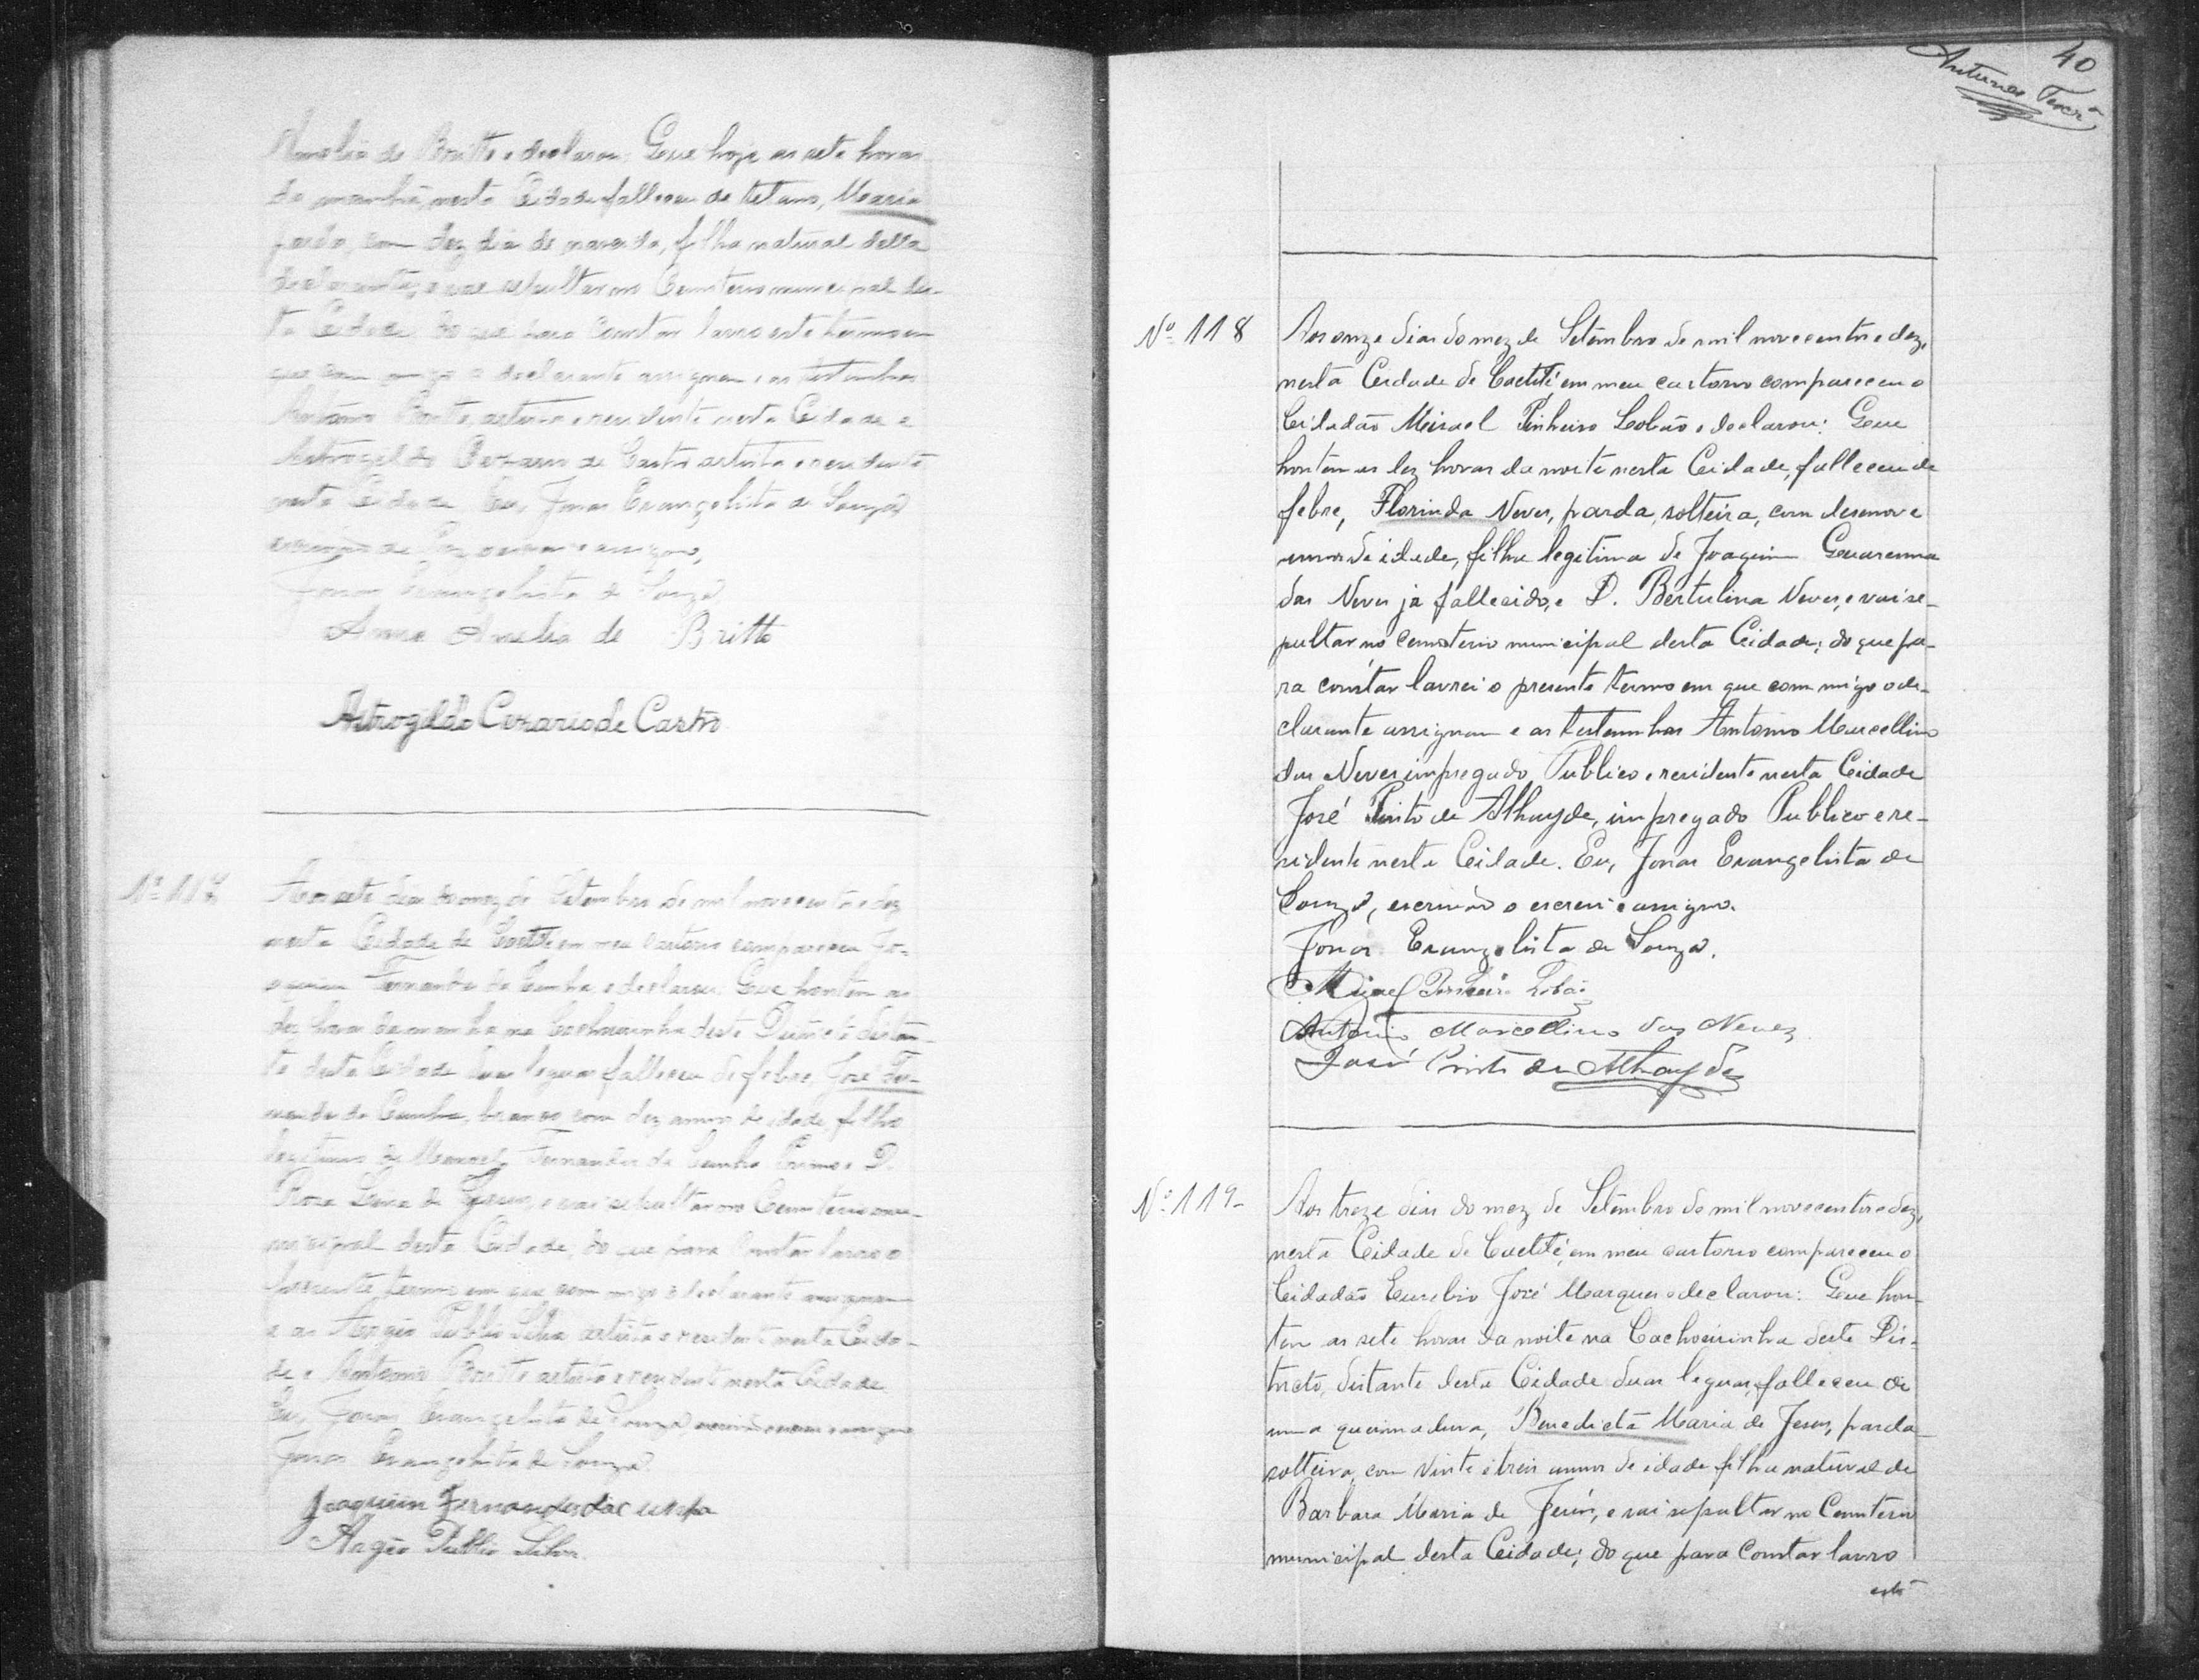 Amelia de Britto e declarou: Que hoje as sete horas
da manhã, nesta Cidade falleceu de tetano, Maria
parda, com dez dia de nascida, filha natural della
declarante, e vae sepultar no Cemiterio municipal des-
ta Cidade. do que para constar lavro este termo em
que com migo a declarante assignam e as testimunhas
Antonio Britto, artista e residente nesta Cidade e
Astrogildo Cezario de Castro artista e residente
nesta Cidade. Eu, Jonas Evangelista de Souza
escrivão de Paz escrevi e assigno,
Jonas Evangelista de Souza
Anna Amelia de Britto
Astrogildo Cezario de Castro
Nº 117
Aos sete dias do mez de Setembro de mil novecentos e dez
nesta Cidade de Caetité em meu cartorio compareceu Jo-
aquim Fernandes da Cunha e declarou: Que hontem as
dez horas da manhã na Cachoeirinha deste Districto distan-
te desta Cidade duas leguas falleceu de febre, José Fer-
nandes da Cunha, branco com dez annos de idade filho
legitimo de Manoel Fernandes da Cunha Primo e D.
Rosa de Jesus, e vai sepultar no Cemiterio mu-
nicipal desta Cidade, do que para constar lavro o
presente termo em que com migo o declarante assignam
e as Argeo Publio Silva artista e residente nesta Cida-
de e Antonio Britto artista e residente nesta Cidade
Eu, Jonas Evangelista de Souza escrivão escrevi e assigno
Jonas Evangelista de Souza
Joaquim Fernandes da Cunha
Argeo Publio Silva.
40
Antunes
Nº 118
Aos onze dias do mez de Setembro de mil novecentos e dez,
nesta Cidade de Caetité em meu cartorio compareceu o
Cidadão Misael Pinheiro Lobão e declarou: Que
hontem as dez horas da noite nesta Cidade, falleceu de
febre, Florinda Neves, parda, solteira, com desenove
annos de idade, filha legitima de Joaquim
das Neves já fallecido, e D. Bertulina Neves, e vai se-
pultar no cemiterio municipal desta Cidade; do que pa-
ra constar lavrei o presente termo em que com migo o de-
clarante assignam e as testemunhas Antonio Marcellino
das Neves impregado Publico e residente nesta Cidade
José Pinto de Athayde, impregado Publico e re-
sidente nesta Cidade. Eu, Jonas Evangelista de
Souza, escrivão o escrevi e assigno.
Jonas Evangelista de Souza.
Misael Pinheiro Lobão
Antonio Marcellino das Neves
José Pinto de Athayde
Nº 119-
Aos treze dias do mez de Setembro de mil novecentos e dez,
nesta Cidade de Caetité, em meu cartorio compareceu o
Cidadão Euzebio José Marques e declarou: Que hon-
tem as sete horas da noite na Cachoeirinha deste Dis-
tricto, distante desta Cidade duas leguas, falleceu de
uma queimadura, Benedicta Maria de Jesus, parda
solteira, com vinte e treis annos de idade filha natural de
Barbara Maria de Jesus, e vai sepultar no Cemiterio
municipal desta Cidade; do que para constar lavro
este